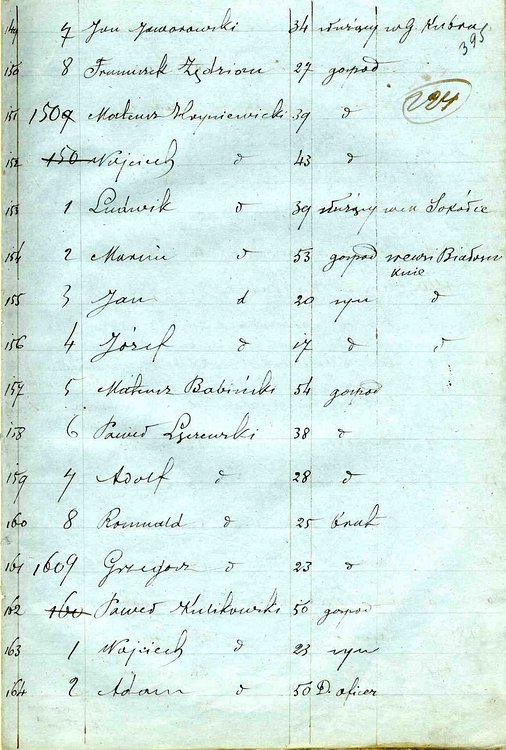 149 7 Jan Jaworowski 34 służący w G.
395
150 8 Franciszek 27 gospod
224
151 1509 Mateusz Hryniewicki 39 d
152 150 Wojciech d 43 d
153 1 Ludwik d 39 służący w m Sokółce
154 2 Marcin d 53 gospod we wsi
155 3 Jan d 20 syn d
156 4 Józef d 17 d d
157 5 Mateusz Babiński 54 gospod
158 6 Paweł 38 d
159 7 Adolf d 28 d
160 8 Romuald d 25 brat
161 1609 Grzegorz d 23 d
162 160 Paweł Kulikowski 50 gospod
163 1 Wojciech d 23 syn
164 2 Adam d 50 D. oficer